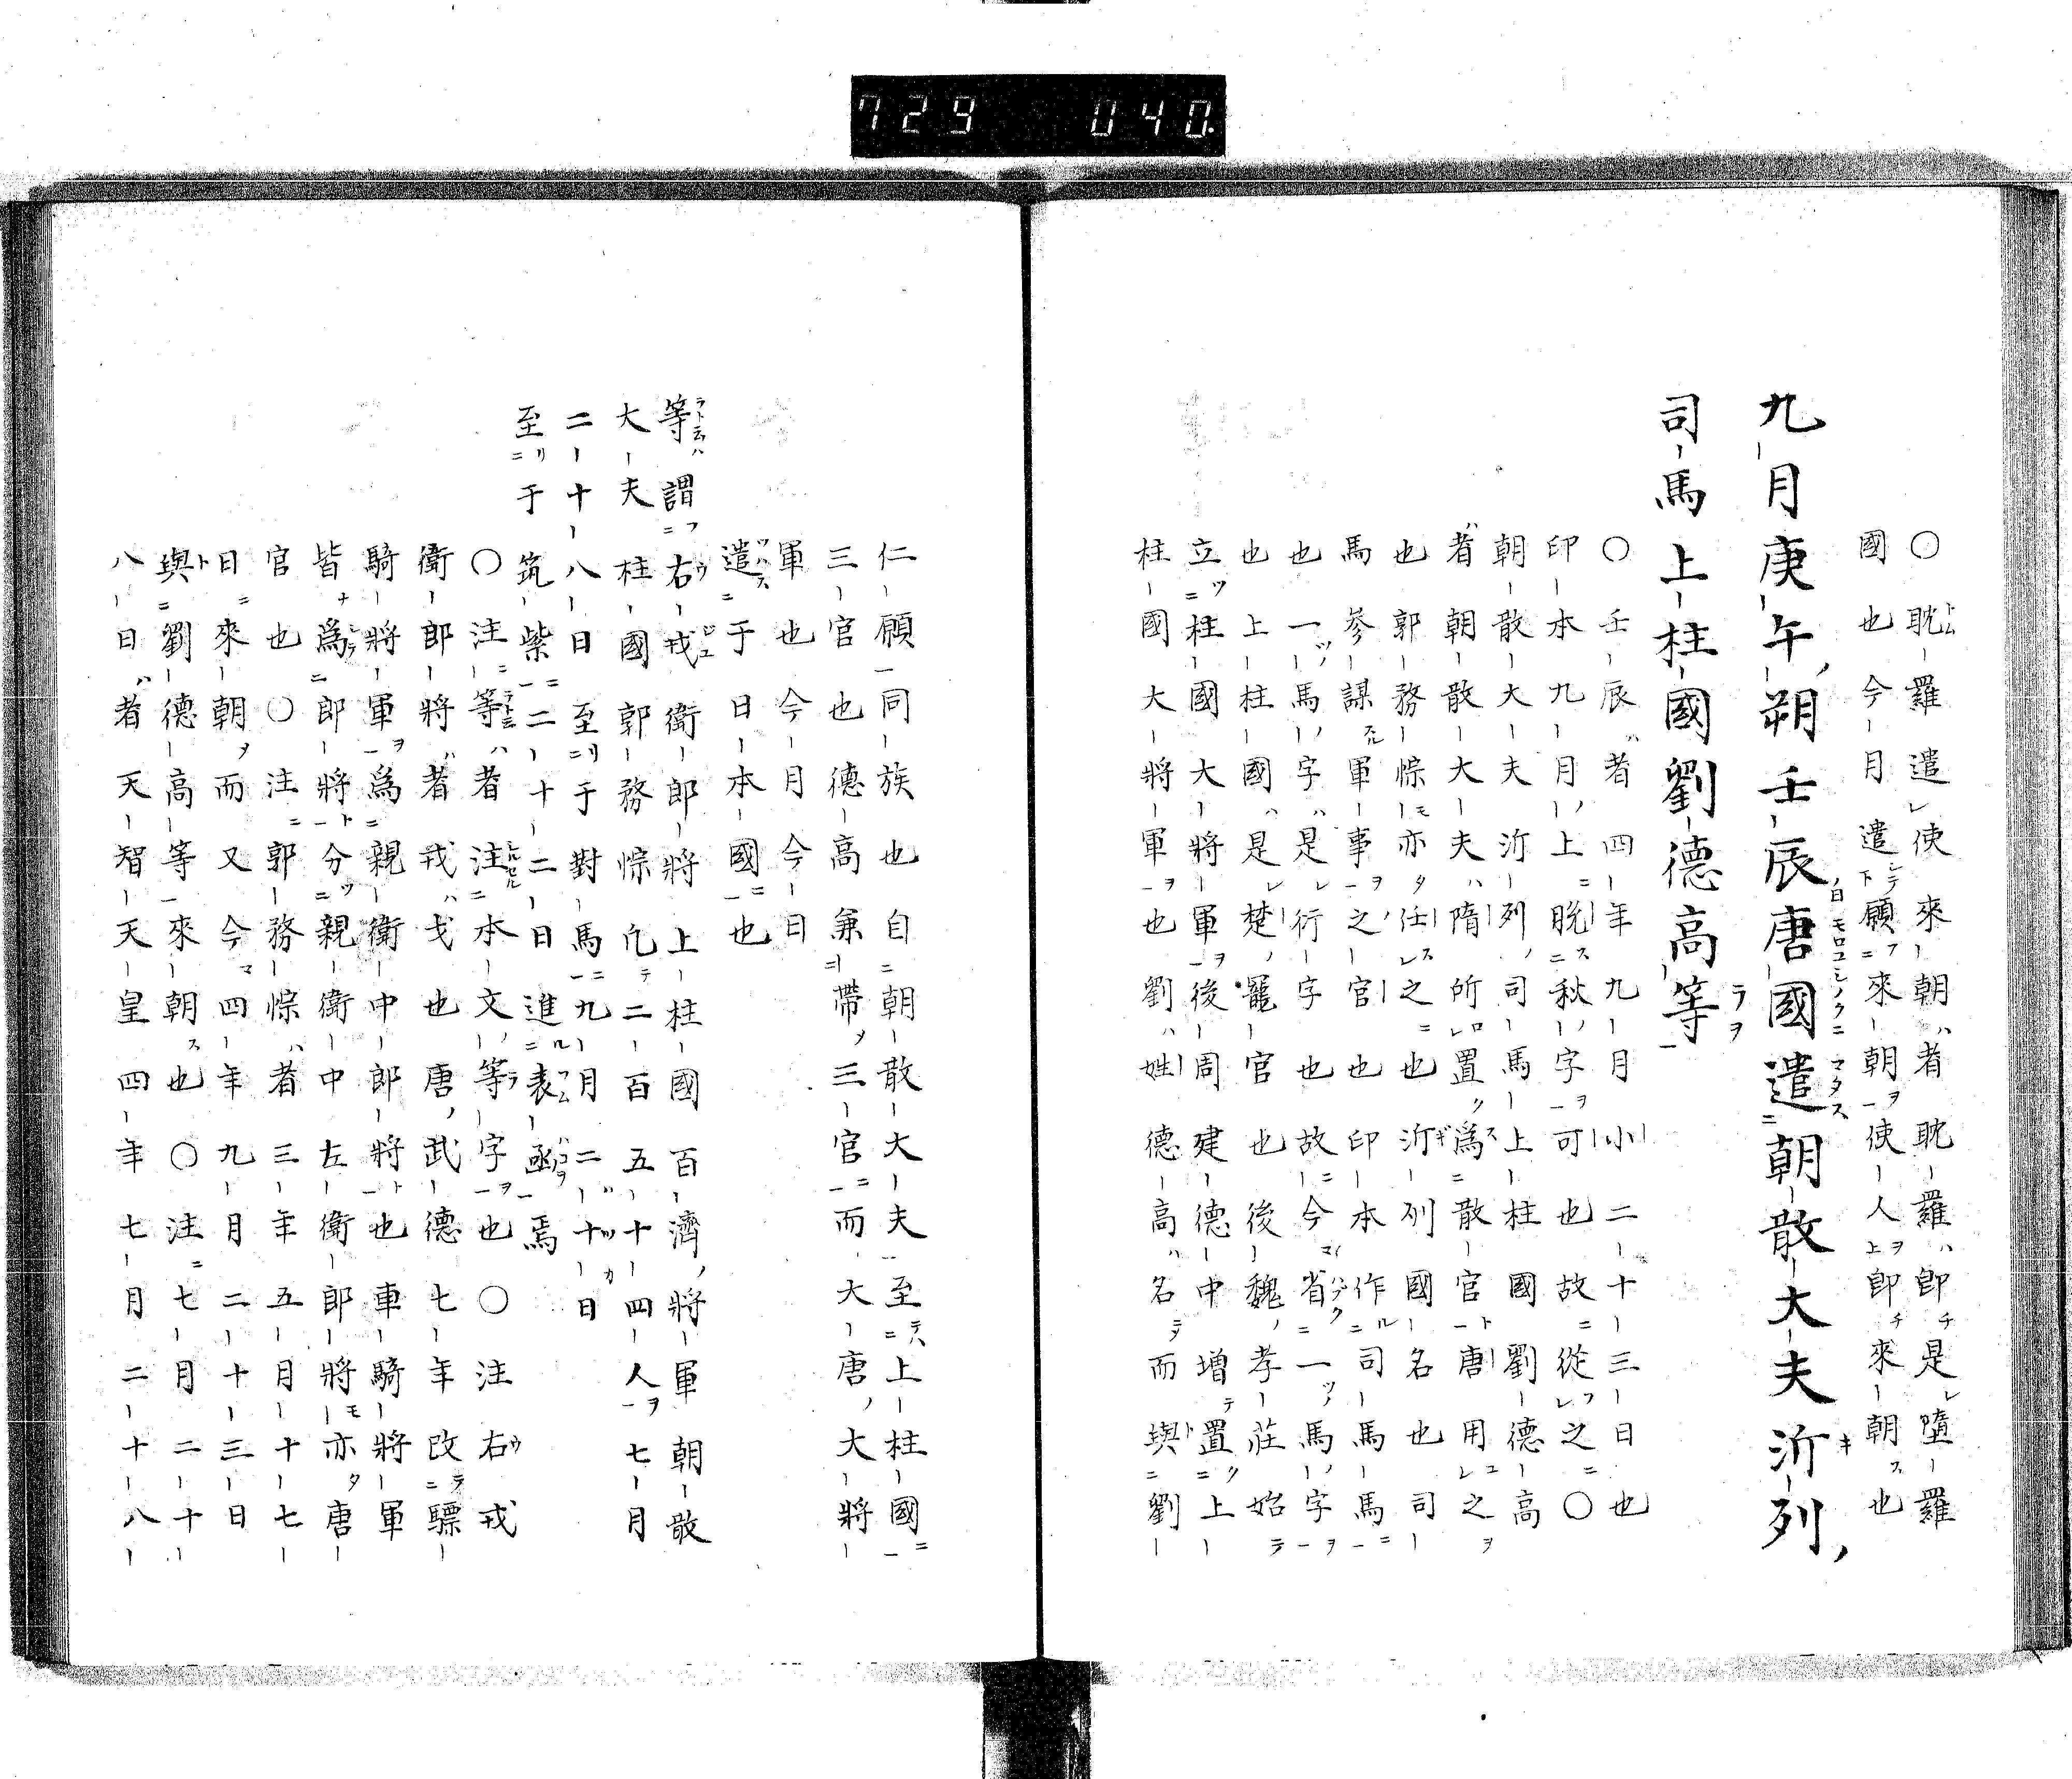 729 040
〇耽羅遣使來朝者耽羅即是墮羅
國也今月遣願來朝使人即來朝也
九月庚午朔壬辰唐國遣朝散大夫沂列
司馬上柱國劉德高等
〇壬辰者四年九月小二十三日也
印本九月上脱秋字可也故從之〇
朝散大夫沂列司馬上柱國劉德高
者朝散大夫隋所置爲散官唐用之
也郭務悰亦任之也沂列國名也司
馬參謀軍事之官也印本作司馬馬
也一馬字是衍字也故今省一馬字
也上柱國是楚寵官也後魏孝莊始
立柱國大將軍後周建德中增置上
柱國大將軍也劉姓德高名而與劉
仁願同族也自朝散大夫至上柱國
三官也德高兼帶三官而大唐大將
軍也今月今日
遣于日本國也
等謂右戎衛郎將上柱國百濟將軍朝散
大夫柱國郭務悰凢二百五十四人七月
二十八日至于對馬九月二十日
至于筑紫二十二日進表函焉
〇注等者注本文等字也〇注右戎
衛郎將者戎戈也唐武德七年改驃
騎將軍爲親衛中郎將也車騎將軍
皆爲郎將分親衛中左衛郎將亦唐
官也〇注郭務悰者三年五月十七
日來朝而又今四年九月二十三日
與劉德高等來朝也〇注七月二十
八日者天智天皇四年七月二十八